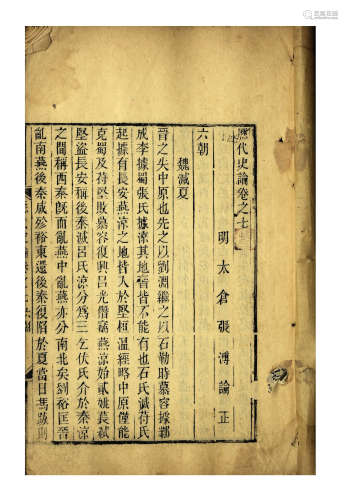 歷代史論卷之七
明太倉張溥論正
六朝
魏滅夏
晉之失中原也先之以劉淵繼之以石勒時慕容據鄴
成李據蜀張氏據涼其地晉皆不能有也石氏滅苻氏
起據有長安燕涼之地皆入於堅桓溫經略中原僅能
克蜀及苻堅敗慕容復興呂光僭涼燕始貳姚萇弒
堅盜長安稱後秦滅呂氏涼分為三乞伏氏介於秦涼
之間稱西秦既而亂燕中亂燕亦分南北矣劉裕匡晉
亂南燕後秦咸殄裕東還後秦復陷於夏當日馬跡則